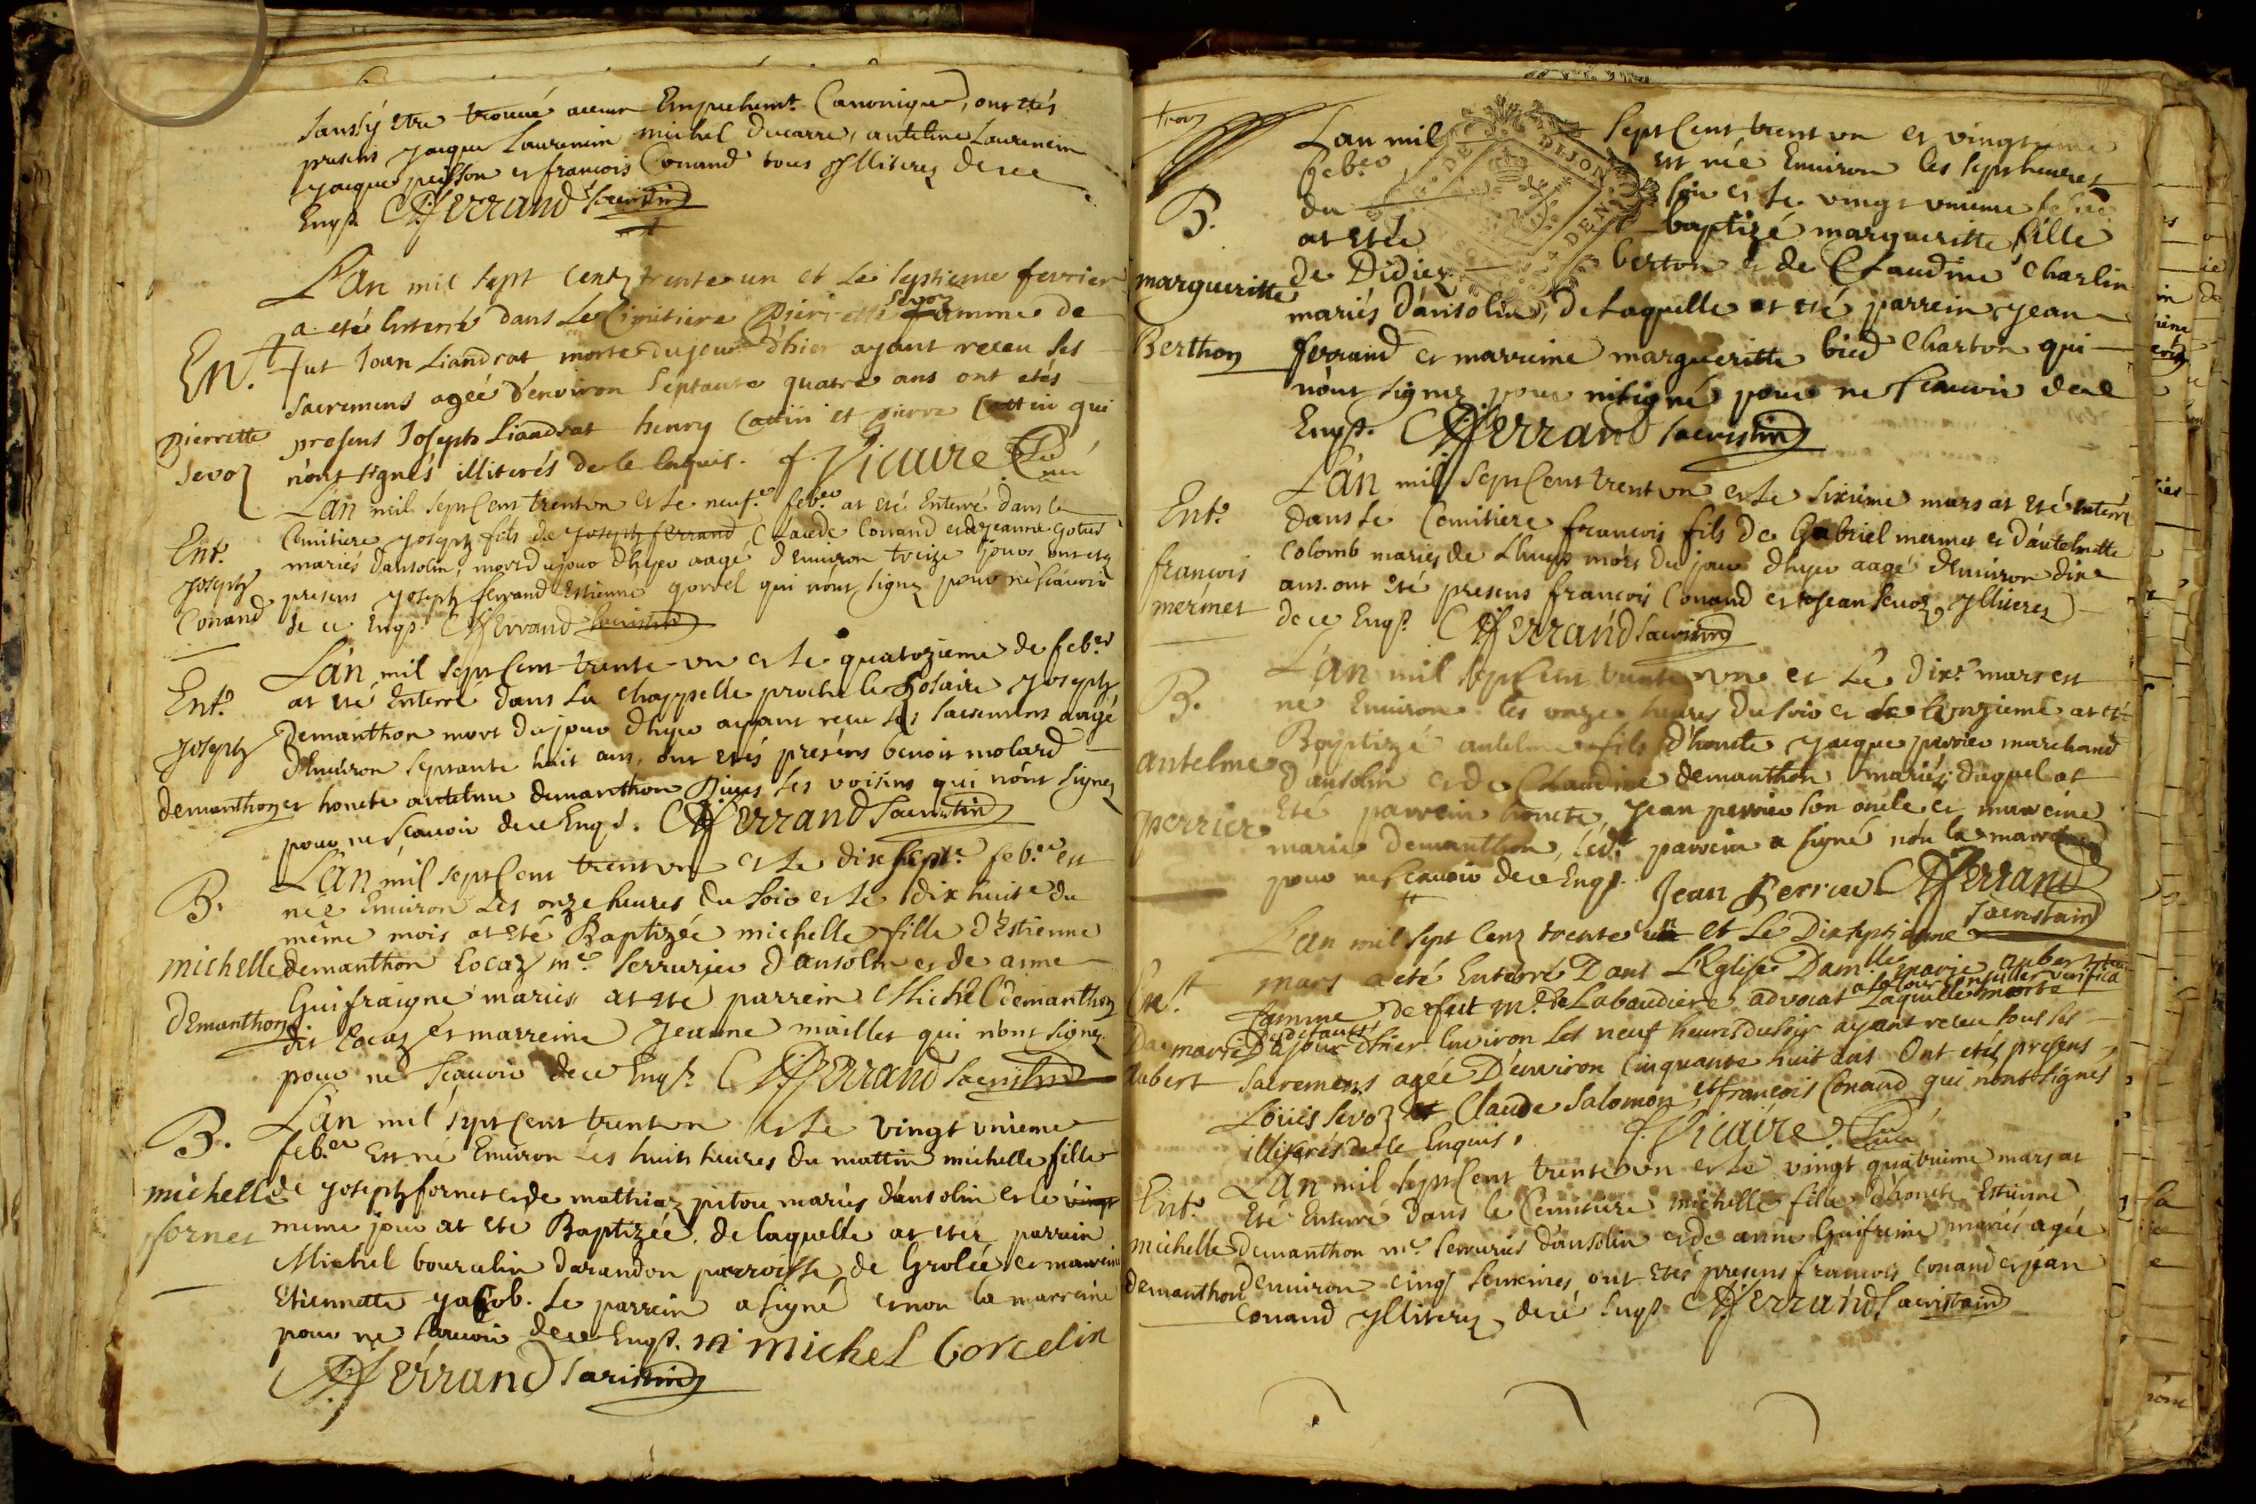 sans sÿ etre trouué aucun Empechemt. Canonique, ont etés
presens yacque Laurencin michel ducarre, antelme Laurencin
yacque peysson et francois Conand tous yllitерez de ce
Enqs. Ferrand Sacristin
L'An mil sept Centz trente un et Le septieme fevrier
a eté Enterré dans Le Cimitiere Pierrette Sevoz famme de
fut Joan Liandrat morte du jour d'hier ayant receu ses
Sacremens agée d'environ septante quatre ans ont etés
presens Joseph Liandrat henry Cattin et pierre Cattin qui
n'ont signés illiterés de le Enquis. f. Vicaire Curé
En.t
Pierrette
Sevoz
L'an mil sept Cent trent vn et Le neuf.e feb.er at eté Enterré dans le
Cemitiere yoseph fils de Joseph ferrand Claude Conand et de jeanne gotras
mariés d'ansolin, mort du jour d'hyer aagé d'Enuiron treize jours ont etez
presens yoseph ferrand Estienne gorrel qui n'ont signez pour ne scauoir
de ce Enqs. Ferrand Sacristin
Ent.
yoseph
Conand
L'an mil sept Cent trente vn et Le quatozieme de feb.er
at eté Enterré dans La chappelle proche le Rosaire yoseph
Demanthon mort du jour d'hyer ayant recu ses sacremens aagé
d'Enuiron septante huit ans, ont etés presens benoit molard
et honete antelme demanthon Dives ses voisins qui n'ont signez
pour ne scauoir de ce Enqs. Ferrand Sacristin
Ent.
yoseph
demanthon
L'an mil sept Cent trent vn et Le dix sept.e feb.er est
née Enuiron Les onze heures du soir et Le dix huit.e du
même mois at eté Baptizée michelle fille d'Estienne
demanthon Cocaz m.e serrurier d'ansolin et de anne
Guifraigne mariés at eté parrein Michel demanthon
dit Cocaz et marreine yeanne maillet qui n'ont signez
pour ne scauoir de ce Enqs. Ferrand Sacristin
B.
michelle
Demanthon
L'an mil sept Cent trent vn et Le vingt vnieme
feb.er Est né Enuiron Les huit heures du mattin michelle fille
de yoseph fornet et de mathiaz pitou mariés d'ansolin et le vingt
meme jour at eté Baptizée, de laquelle at etéz parrain
Michel bourcelin d'arandon parroisse de Grolée et marreine
Etiennette yacob. Le parrein a signé et non la marreine
pour ne scauoir de ce Enqs. m michel borcelin
Ferrand Sacristin
B.
michelle
fornet
trois
L'an mil sept Cent trent vn et vingt
feb.er est née Enuiron les sept heures
du soir et Le vingt vnieme
at etée baptizé margueritte fille
de Didier berton et de Claudine Charlin
mariés d'ansolin, de Laquelle at eté parrein yean
ferrand et marreine margueritte bied Charton qui
n'ont signez pour pour ne scauoir de ce
Enqs. Ferrand Sacristin
DIJON
B.
margueritte
Berthon
L'an mil sept Cent trent vn et Le sixieme mars at eté Enterré
dans Le Cemitiere francois fils de Gabriel mermet et d'antelmette
Colomb mariés de Lhuys mort du jour d'hyer aagé d'Enuiron dix
ans. ont eté presens francois Conand et jean Sevoz, yllitерez
de ce Enqs. Ferrand Sacristin
Ent.
francois
mermet
L'an mil sept Cent trente vn et Le dix.e mars est
né Enuiron les onze heures du soir et le onzieme at eté
Baptizé antelme fils d'honete yacque perrier marchand
d'ansolin et de Claudine demanthon mariés; duquel at
eté parrein honete yean perrier son oncle et marreine
marie demanthon, led.t parrein a signé non la marreine
pour ne scauoir de ce Enqs. Jean Perrier Ferrand
Sacristain
B.
antelme
perrier
L'an mil sept Cenz trente un et Le Dixseptieme
mars a eté Enterré Dans L'Eglise Dam.lle marie aubert
famme de fut m.e de Labaudiere advocat a la Cour Laquelle morte
Du jour d'hier Environ Les neuf heures du soir ayant receu tous ses
sacremens agée D'environ Cinquante huit ans Ont etés presens
Loüis Sevoz et Claude Salomon et francois Conand qui n'ont signés
illiterés de le Enquis. f. Vicaire Curé
En.t
Da.
marie
aubert
L'an mil sept Cent trente vn et Le vingt quatrieme mars at
Eté Enterré dans le Cemitiere michelle fille d'honete Estienne
demanthon m.e serruries d'ansolin et de anne Guifreine mariés agée
d'enuiron cinq semeines, ont etés presens francois Conand et jean
Conand yllitерez de ce Enqs. Ferrand Sacristain
Ent.
michelle
demanthon